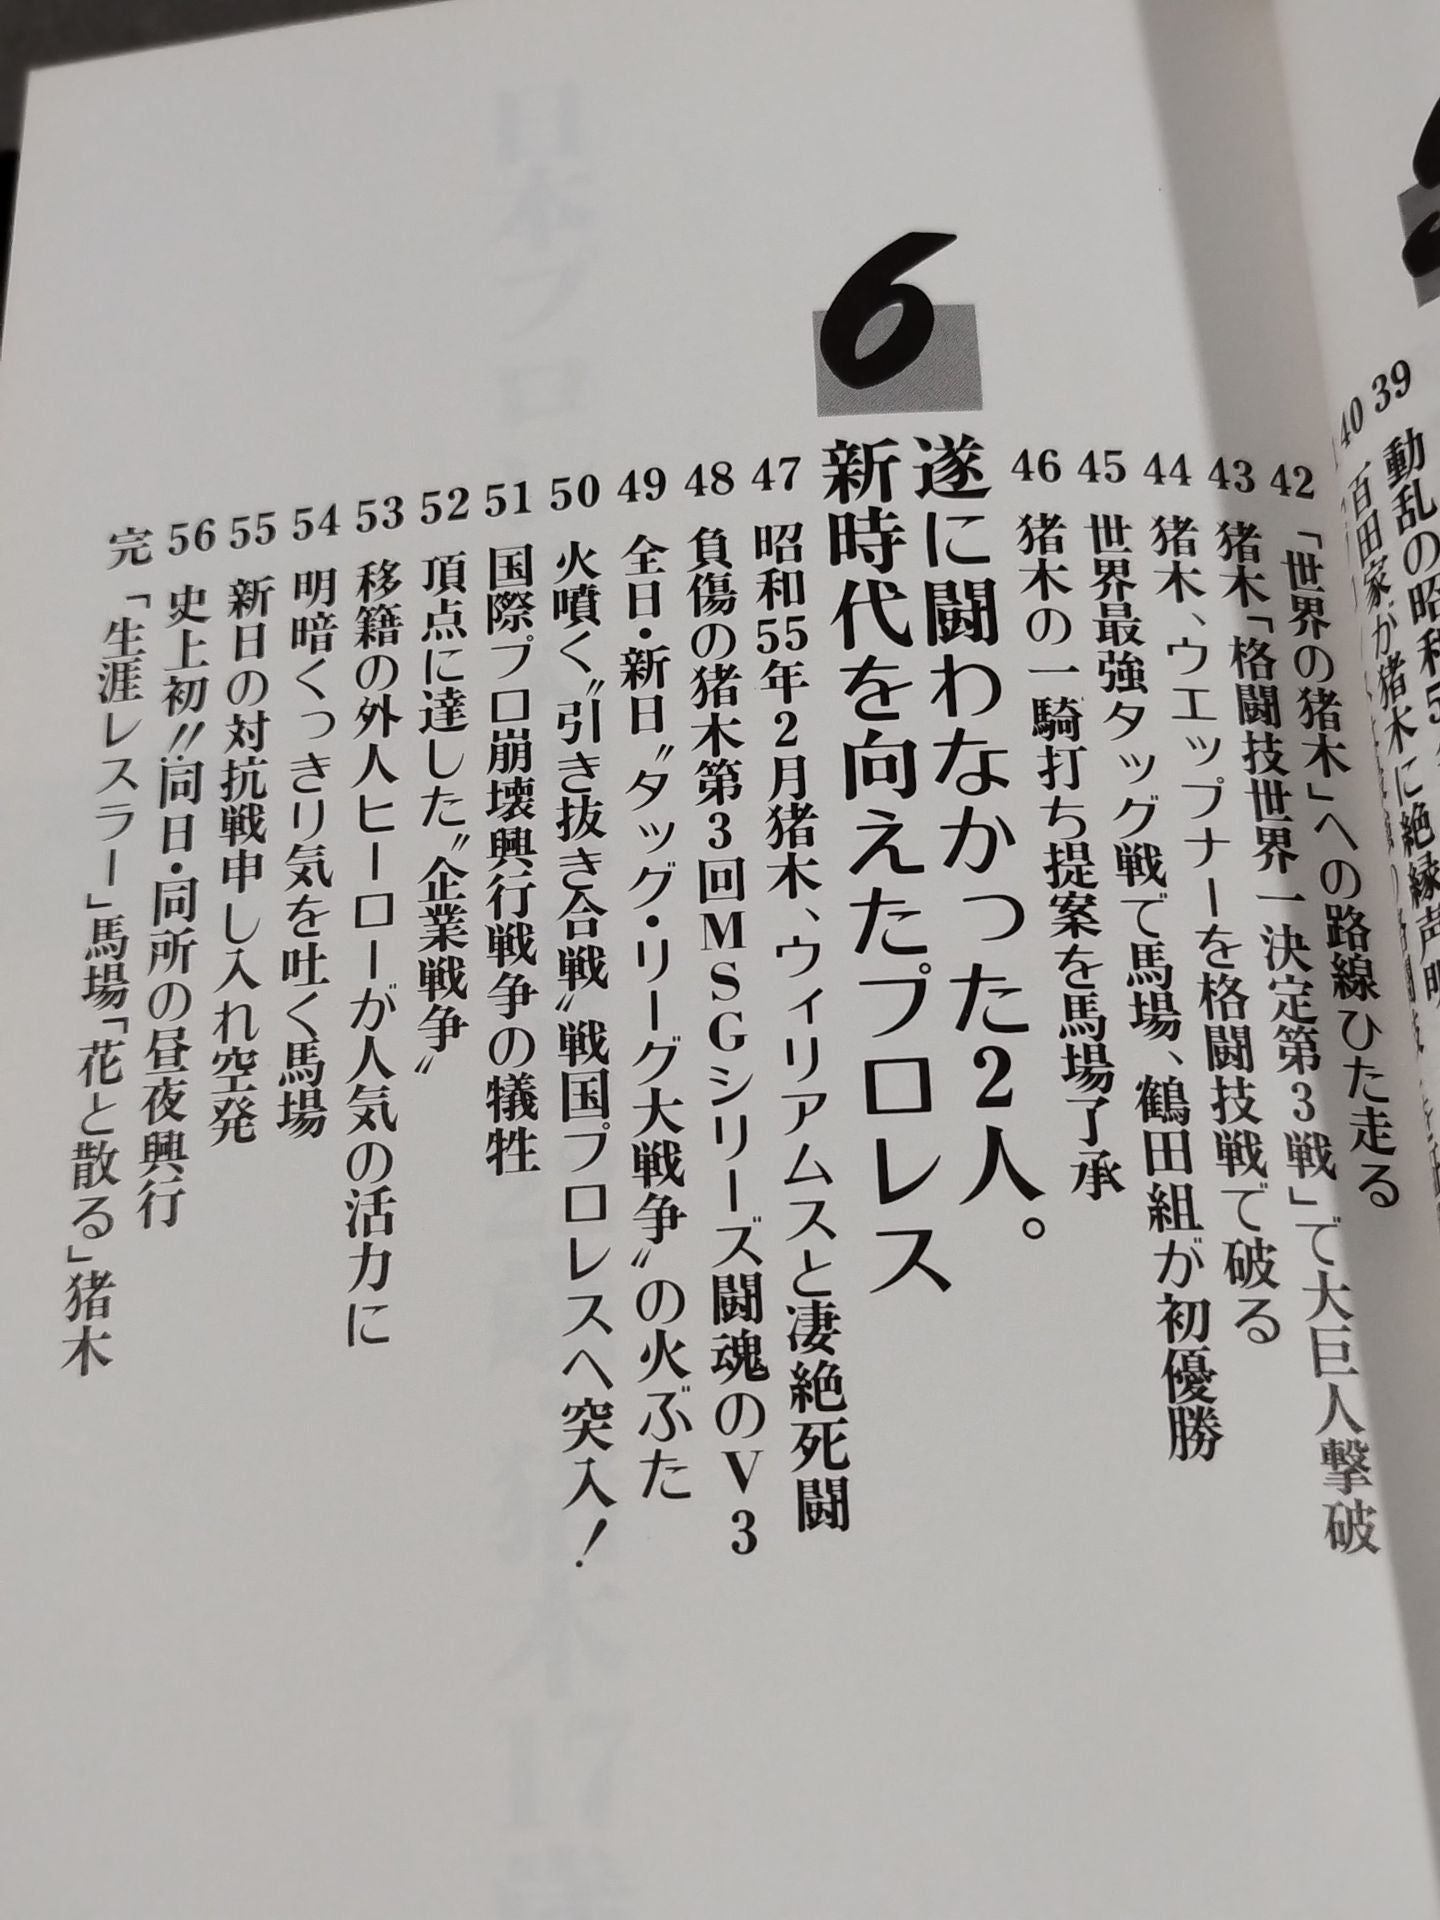 39 動乱の昭和5
40
42 「世界の猪木」への路線ひた走る
43 猪木「格闘技世界一決定第3戦」で大巨人撃破
44 猪木、ウエップナーを格闘技戦で破る
45 世界最強タッグ戦で馬場、鶴田組が初優勝
46 猪木の一騎打ち提案を馬場了承
6
遂に闘わなかった2人。
新時代を向えたプロレス
47 昭和55年2月猪木、ウィリアムスと凄絶死闘
48 負傷の猪木第3回MSGシリーズ闘魂のV3
49 全日・新日〝タッグ・リーグ大戦争〟の火ぶた
50 火噴く〝引き抜き合戦〟戦国プロレスへ突入!
51 国際プロ崩壊興行戦争の犠牲
52 頂点に達した〝企業戦争〟
53 移籍の外人ヒーローが人気の活力に
54 明暗くっきり気を吐く馬場
55 新日の対抗戦申し入れ空発
56 史上初!!同日・同所の昼夜興行
完 「生涯レスラー」馬場「花と散る」猪木